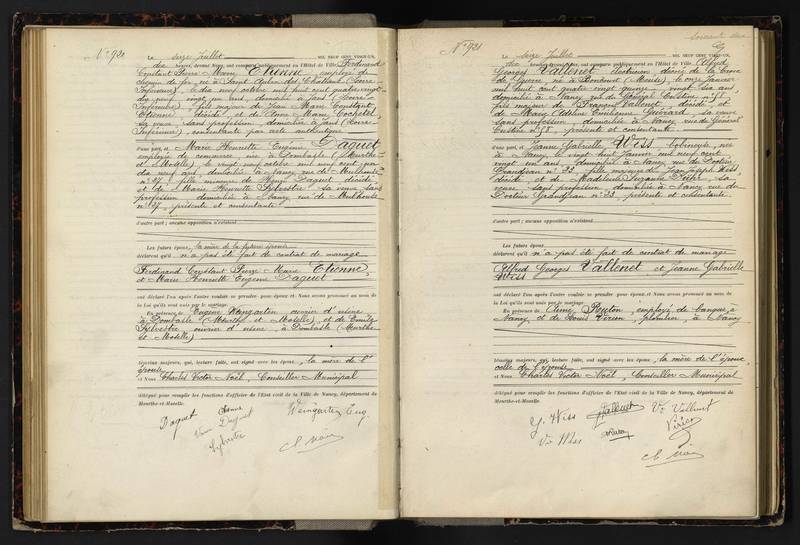 N° 920
Le seize Juillet MIL NEUF CENT VINGT-UN,
dix heures, devant Nous, ont comparu publiquement en l'Hôtel de Ville, Ferdinand
Constant Pierre Marie Etienne, employé de
chemin de fer, né à Saint Aubin des Châteaux (Loire
Inférieure), le dix neuf octobre mil huit cent quatre vingt
dix neuf, vingt un ans, domicilié à Jans (Loire
Inférieure), fils majeur de Jean Marie Constant
Etienne décédé, et de Anne Marie
sa veuve, sans profession, domiciliée à Jans (Loire
Inférieure), consentante par acte authentique
d'une part, et Marie Henriette Eugénie Daguet
employée de commerce, née à Dombasle (Meurthe
et Moselle), le vingt neuf octobre mil neuf cent
dix neuf ans, domiciliée à Nancy rue de Mulhouse
n° 37, fille mineure de Henry Daguet décédé
et de Marie Henriette Sylvestre sa veuve sans
profession, domiciliée à Nancy rue de Mulhouse
n° 37, présente et consentante
d'autre part ; aucune opposition n'existant
Les futurs époux, la mère de la future épouse
déclarent qu'il n'a pas été fait de contrat de mariage
Ferdinand Constant Pierre Marie Etienne
et Marie Henriette Eugénie Daguet
ont déclaré l'un après l'autre vouloir se prendre pour époux et Nous avons prononcé au nom de
la Loi qu'ils sont unis par le mariage.
En présence de Eugène Weingaerten, ouvrier d'usine
à Dombasle (Meurthe et Moselle), et de Emile
Sylvestre ouvrier d'usine, à Dombasle (Meurthe
et Moselle)
témoins majeurs, qui, lecture faite, ont signé avec les époux, la mère de l'
épouse
et Nous Charles Victor Noël, Conseiller Municipal
délégué pour remplir les fonctions d'officier de l'État civil de la Ville de Nancy, département de
Meurthe-et-Moselle.
Daguet
Daguet
Sylvestre
Weingaerten Eug.
Ch. Noël
N° 921
Le seize Juillet MIL NEUF CENT VINGT-UN,
dix heures, devant Nous, ont comparu publiquement en l'Hôtel de Ville, Alfred
Georges Vallenet électricien, décoré de la Croix
de Guerre, né à (Meuse), le onze Janvier
mil huit cent quatre vingt quinze, vingt six ans,
domicilié à Nancy, rue du Général Custine n° 78
fils majeur de François Vallenet, décédé et
de Marie Adeline Emilienne Guérard, sa veuve
sans profession, domiciliée à Nancy rue du Général
Custine n° 78, présente et consentante
d'une part, et Jeanne Gabrielle Wiss, bobineuse, née
à Nancy, le vingt huit Janvier mil neuf cent
vingt un ans, domiciliée à Nancy rue du Docteur
Grandjean n° 23, fille majeure de Jean Joseph Wiss
décédé et de Madeleine Suzanne sa
veuve sans profession, domiciliée à Nancy rue du
Docteur Grandjean n° 23, présente et consentante
d'autre part ; aucune opposition n'existant
Les futurs époux
déclarent qu'il n'a pas été fait de contrat de mariage
Alfred Georges Vallenet et Jeanne Gabrielle
Wiss
ont déclaré l'un après l'autre vouloir se prendre pour époux et Nous avons prononcé au nom de
la Loi qu'ils sont unis par le mariage.
En présence de employé de banque, à
Nancy et de Louis Pirien, plombier, à Nancy
témoins majeurs, qui, lecture faite, ont signé avec les époux, la mère de l'époux,
celle de l'épouse
et Nous Charles Victor Noël, Conseiller Municipal
délégué pour remplir les fonctions d'officier de l'État civil de la Ville de Nancy, département de
Meurthe-et-Moselle.
J. Wiss
Vallenet
Vve Vallenet
Vve Wiss
Ch. Noël